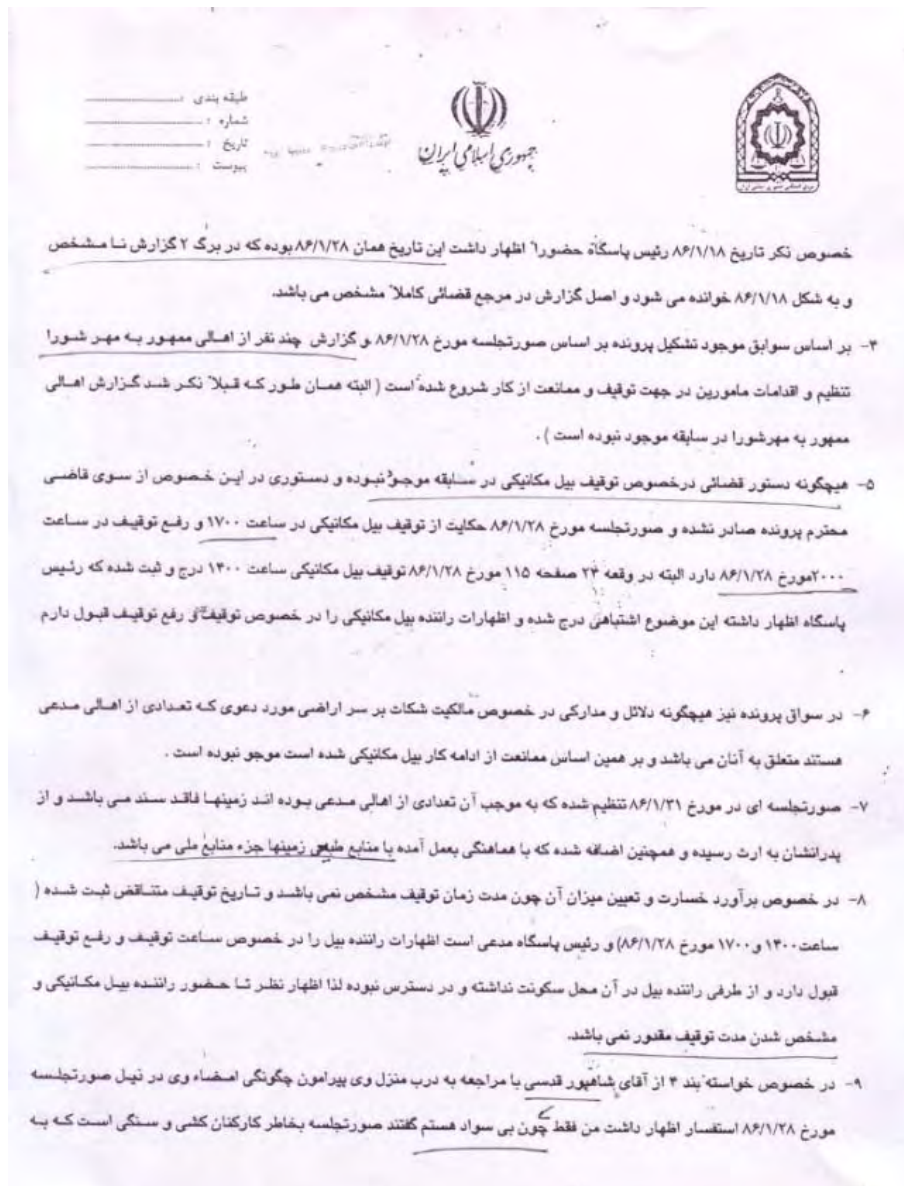 طبقه بندی :
شماره :
تاریخ :
پیوست :
جمهوری اسلامی ایران
خصوص ذکر تاریخ ۸۶/۱/۱۸ رئیس پاسگاه حضوراً اظهار داشت این تاریخ همان ۸۶/۱/۲۸ بوده که در برگ ۲ گزارش نا مشخص
و به شکل ۸۶/۱/۱۸ خوانده می شود و اصل گزارش در مرجع قضائی کاملاً مشخص می باشد.
۴- بر اساس سوابق موجود تشکیل پرونده بر اساس صورتجلسه مورخ ۸۶/۱/۲۸ و گزارش چند نفر از اهالی ممهور به مهر شورا
تنظیم و اقدامات مامورین در جهت توقیف و ممانعت از کار شروع شده است ( البته همان طور که قبلاً ذکر شد گزارش اهالی
ممهور به مهرشورا در سابقه موجود نبوده است ) .
۵- هیچگونه دستور قضائی درخصوص توقیف بیل مکانیکی در سابقه موجود نبوده و دستوری در این خصوص از سوی قاضی
محترم پرونده صادر نشده و صورتجلسه مورخ ۸۶/۱/۲۸ حکایت از توقیف بیل مکانیکی در ساعت ۱۷۰۰ و رفع توقیف در ساعت
۲۰۰۰مورخ ۸۶/۱/۲۸ دارد البته در وقعه ۲۳ صفحه ۱۱۵ مورخ ۸۶/۱/۲۸ توقیف بیل مکانیکی ساعت ۱۴۰۰ درج و ثبت شده که رئیس
پاسگاه اظهار داشته این موضوع اشتباهی درج شده و اظهارات راننده بیل مکانیکی را در خصوص توقیف و رفع توقیف قبول دارم
۶- در سواق پرونده نیز هیچگونه دلائل و مدارکی در خصوص مالکیت شکات بر سر اراضی مورد دعوی که تعدادی از اهالی مدعی
هستند متعلق به آنان می باشد و بر همین اساس ممانعت از ادامه کار بیل مکانیکی شده است موجو نبوده است .
۷- صورتجلسه ای در مورخ ۸۶/۱/۳۱ تنظیم شده که به موجب آن تعدادی از اهالی مدعی بوده اند زمینها فاقد سند می باشد و از
پدرانشان به ارث رسیده و همچنین اضافه شده که با هماهنگی بعمل آمده با منابع طبیعی زمینها جزء منابع ملی می باشد.
۸- در خصوص برآورد خسارت و تعیین میزان آن چون مدت زمان توقیف مشخص نمی باشد و تاریخ توقیف متناقض ثبت شده (
ساعت۱۴۰۰ و ۱۷۰۰ مورخ ۸۶/۱/۲۸) و رئیس پاسگاه مدعی است اظهارات راننده بیل را در خصوص ساعت توقیف و رفع توقیف
قبول دارد و از طرفی راننده بیل در آن محل سکونت نداشته و در دسترس نبوده لذا اظهار نظر تا حضور راننده بیل مکانیکی و
مشخص شدن مدت توقیف مقدور نمی باشد.
۹- در خصوص خواسته بند ۴ از آقای شاهپور قدسی با مراجعه به درب منزل وی پیرامون چگونگی امضاء وی در ذیل صورتجلسه
مورخ ۸۶/۱/۲۸ استفسار اظهار داشت من فقط چون بی سواد هستم گفتند صورتجلسه بخاطر کارکنان کشی و سنگی است که به